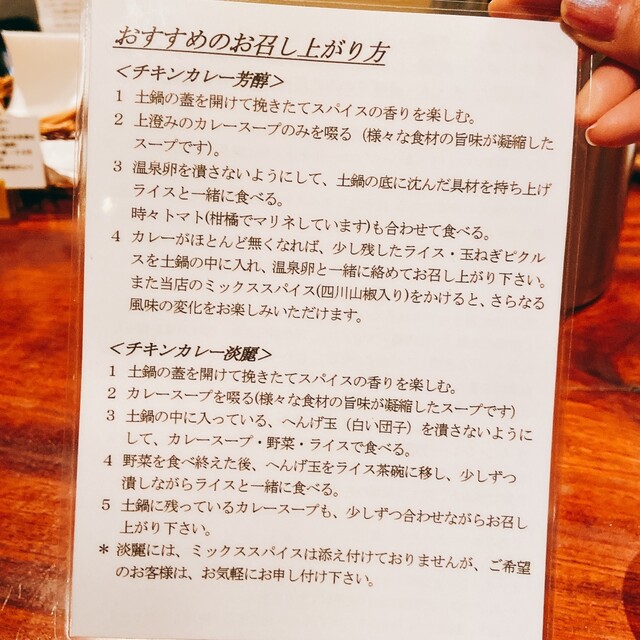 おすすめのお召し上がり方
＜チキンカレー芳醇＞
1 土鍋の蓋を開けて挽きたてスパイスの香りを楽しむ。
2 上澄みのカレースープのみを啜る（様々な食材の旨味が凝縮した
スープです）。
3 温泉卵を潰さないようにして、土鍋の底に沈んだ具材を持ち上げ
ライスと一緒に食べる。
時々トマト(柑橘でマリネしています)も合わせて食べる。
4 カレーがほとんど無くなれば、少し残したライス・玉ねぎピクル
スを土鍋の中に入れ、温泉卵と一緒に絡めてお召し上がり下さい。
また当店のミックススパイス(四川山椒入り)をかけると、さらなる
風味の変化をお楽しみいただけます。
＜チキンカレー淡麗＞
1 土鍋の蓋を開けて挽きたてスパイスの香りを楽しむ。
2 カレースープを啜る(様々な食材の旨味が凝縮したスープです)
3 土鍋の中に入っている、へんげ玉（白い団子）を潰さないように
して、カレースープ・野菜・ライスで食べる。
4 野菜を食べ終えた後、へんげ玉をライス茶碗に移し、少しずつ
潰しながらライスと一緒に食べる。
5 土鍋に残っているカレースープも、少しずつ合わせながらお召し
上がり下さい。
＊ 淡麗には、ミックススパイスは添え付けておりませんが、ご希望
のお客様は、お気軽にお申し付け下さい。